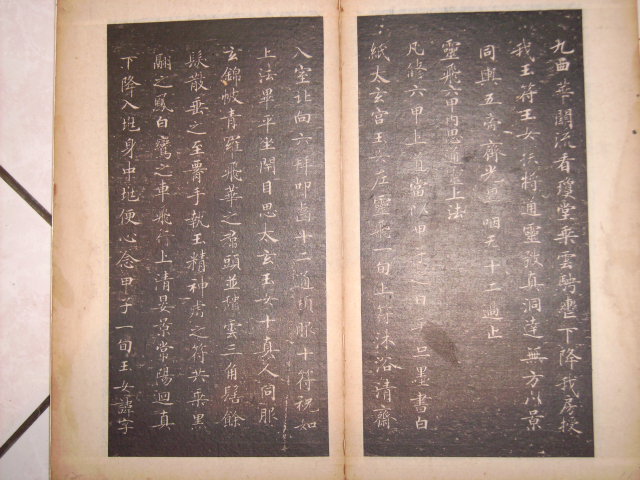 九曲華關流看瓊堂乘雲騁轡下降我房授
我玉符玉女扶將通靈致真洞達無方八景
同輿五帝齊光畢咽炁十二過止
靈飛六甲內思通靈上法
凡修六甲上道當以甲子之日平旦墨書白
紙太玄宮玉女左靈飛一旬上符沐浴清齋
入室北向六拜叩齒十二通頓服十符祝如
上法畢平坐閉目思太玄玉女十真人同服
玄錦帔青羅飛華之裙頭並頹雲三角髻餘
髮散垂之至腰手執玉精神虎之符共乘黑
翮之鳳白鸞之車飛行上清晏景常陽迴真
下降入地身中地便心念甲子一旬玉女諱字